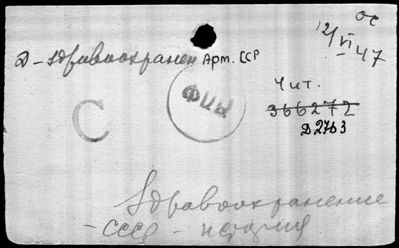 ос
12/VI 47
Д-Здравоохранен Арм. ССР
Чит.
366272
Д2763
С
Здравоохранение
- СССР - история